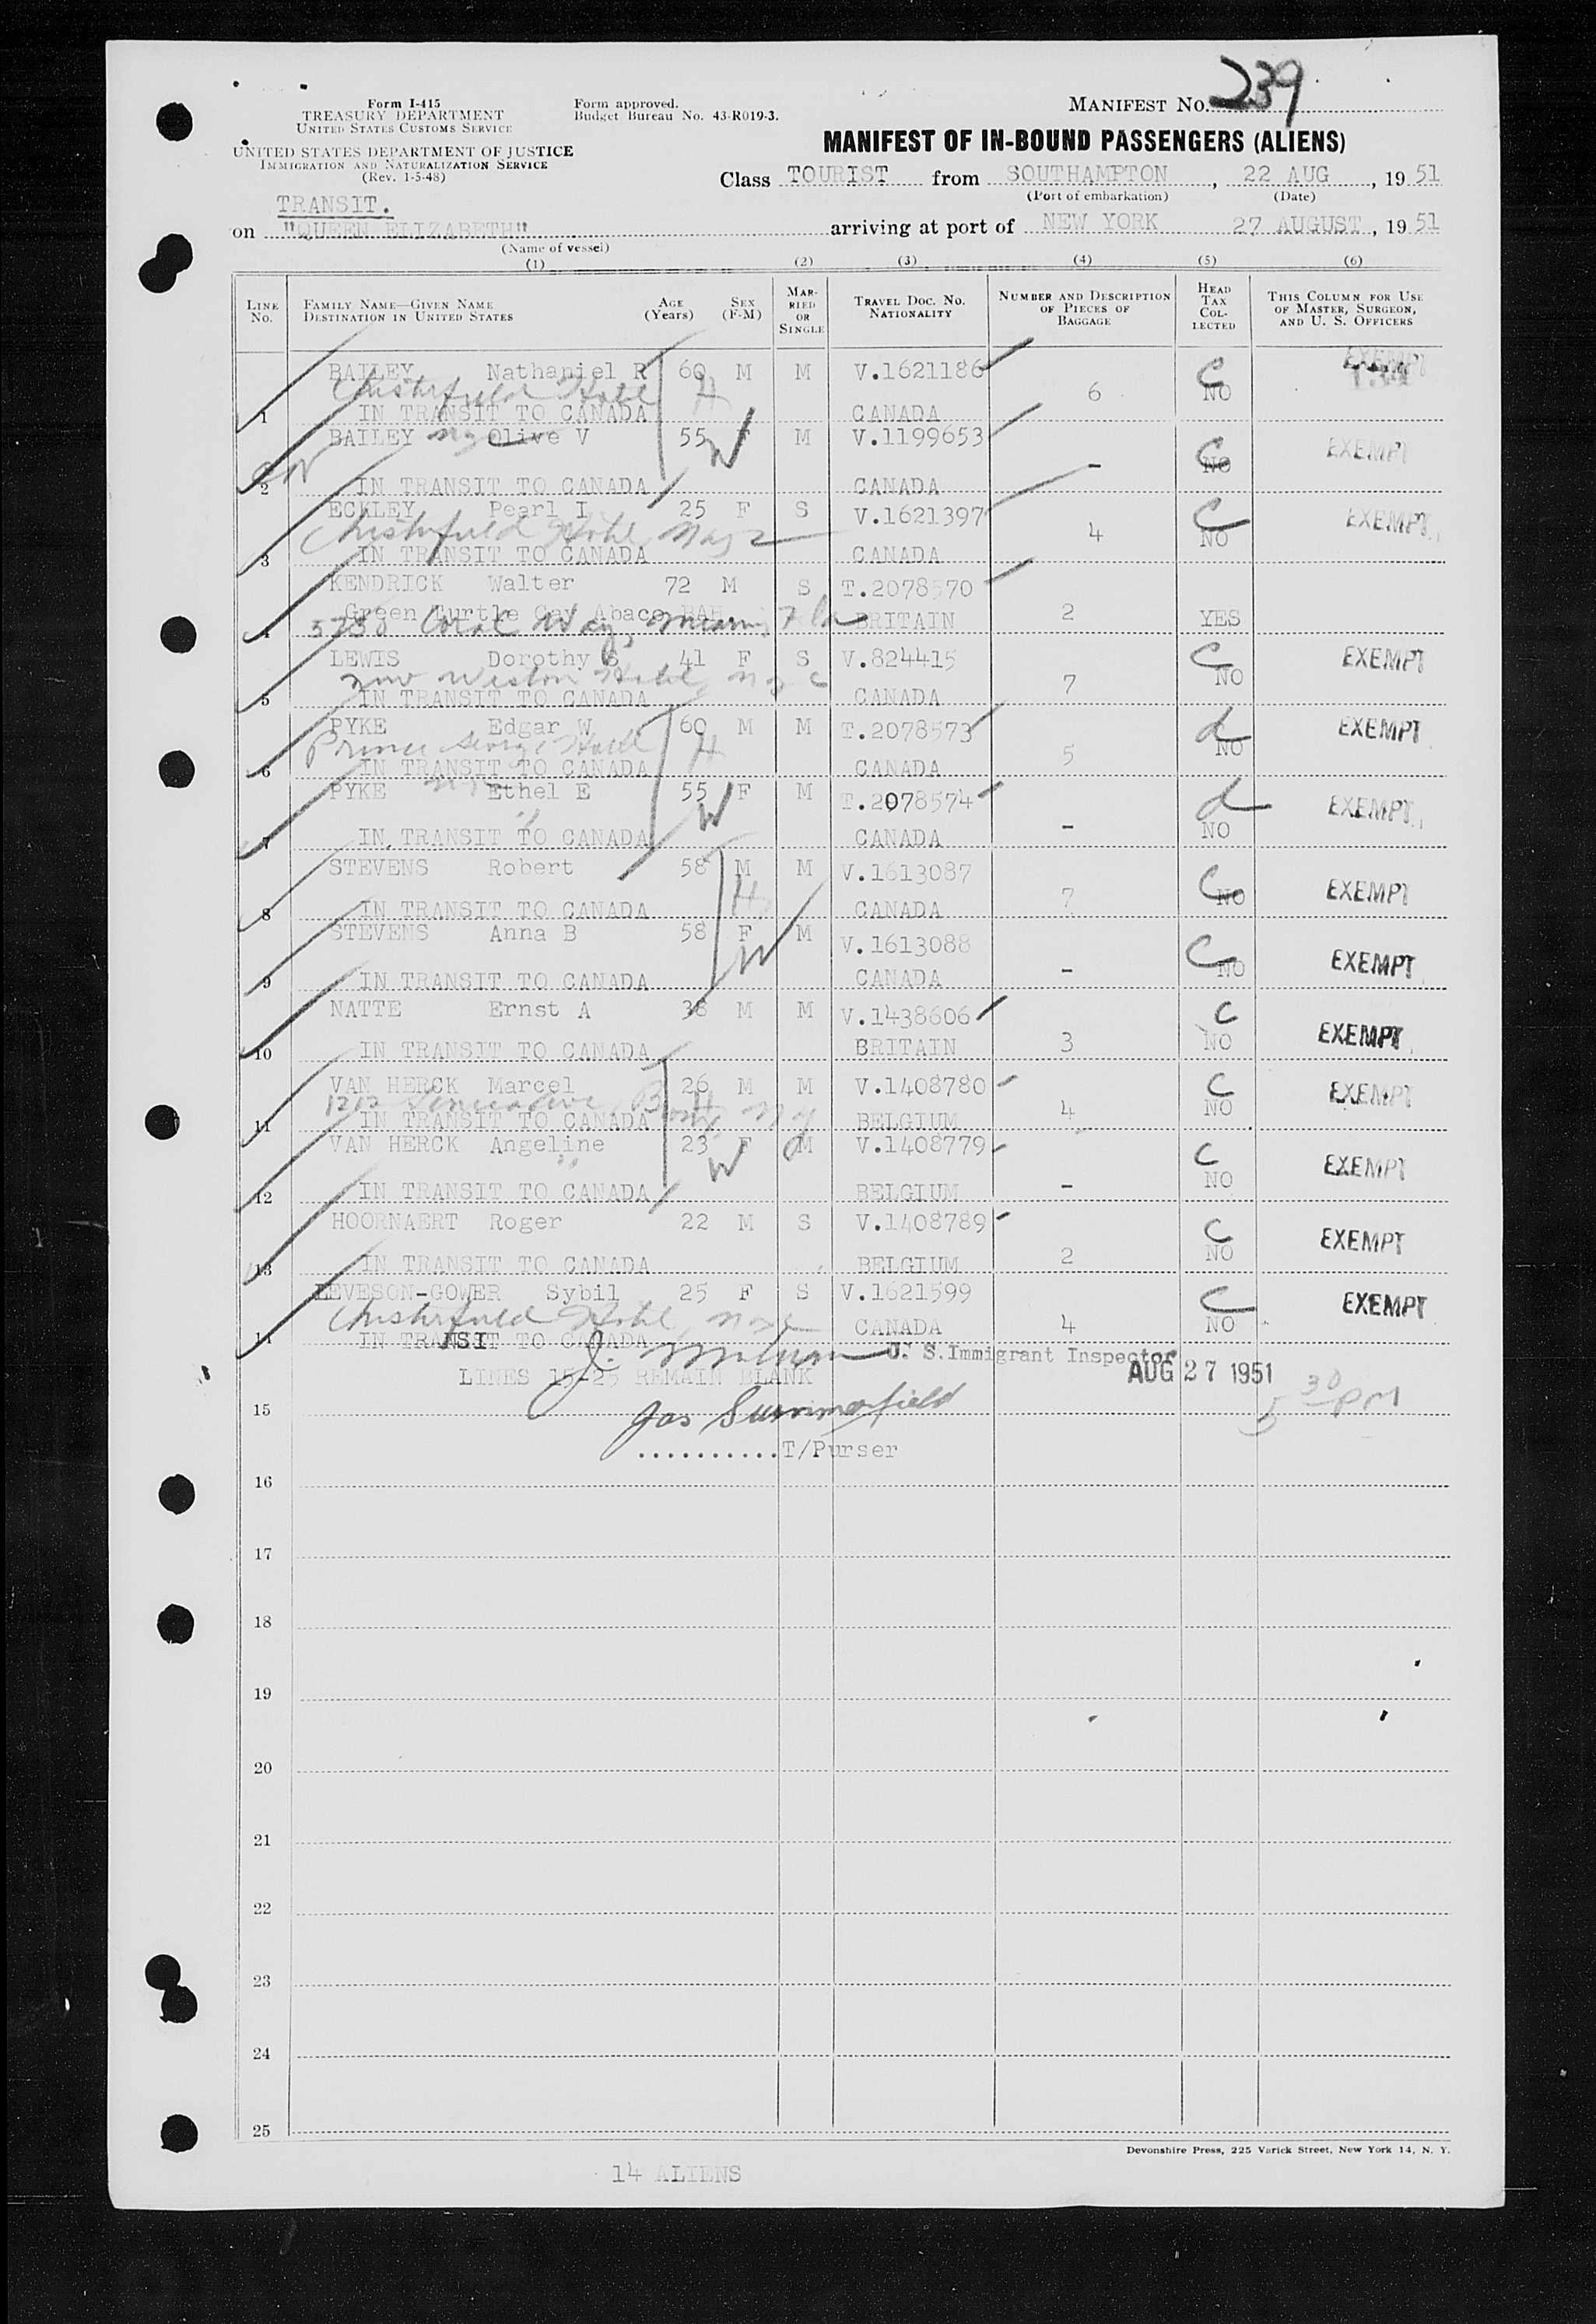 239
Form I-415
TREASURY DEPARTMENT
UNITED STATES CUSTOMS SERVICE
Form approved.
Budget Bureau No. 43-R019-3.
MANIFEST No.
UNITED STATES DEPARTMENT OF JUSTICE
IMMIGRATION AND NATURALIZATION SERVICE
(Rev. 1-5-48)
MANIFEST OF IN-BOUND PASSENGERS (ALIENS)
Class TOURIST from SOUTHAMPTON, 22 AUG, 19 51
(Port of embarkation) (Date)
TRANSIT.
on "QUEEN ELIZABETH" arriving at port of NEW YORK 27 AUGUST, 19 51
(Name of vessel)
(1) (2) (3) (4) (5) (6)
LINE No. FAMILY NAME—GIVEN NAME DESTINATION IN UNITED STATES AGE (Years) SEX (F-M) MARRIED OR SINGLE TRAVEL DOC. No. NATIONALITY NUMBER AND DESCRIPTION OF PIECES OF BAGGAGE HEAD TAX COLLECTED THIS COLUMN FOR USE OF MASTER, SURGEON, AND U. S. OFFICERS
BAILEY Nathaniel R 60 M M V.1621186 C EXEMPT
Chesterfield Hotel H 6 NO
1 IN TRANSIT TO CANADA CANADA
BAILEY Olive V 55 F M V.1199653 C EXEMPT
W - NO
2 IN TRANSIT TO CANADA CANADA
ECKLEY Pearl I 25 F S V.1621397 C EXEMPT
Chesterfield Hotel, 4 NO
3 IN TRANSIT TO CANADA CANADA
KENDRICK Walter 72 M S T.2078570
Green Turtle Cay Abaco BAH 2 YES
4 5730 Coral Way, Miami, Fla BRITAIN
LEWIS Dorothy S 41 F S V.824415 C EXEMPT
new Weston Hotel, n y c 7 NO
5 IN TRANSIT TO CANADA CANADA
PYKE Edgar W 60 M M T.2078573 d EXEMPT
Prince George Hotel H 5 NO
6 IN TRANSIT TO CANADA CANADA
PYKE Ethel E 55 F M T.2078574 d EXEMPT
" W - NO
7 IN TRANSIT TO CANADA CANADA
STEVENS Robert 58 M M V.1613087 C EXEMPT
H 7 NO
8 IN TRANSIT TO CANADA CANADA
STEVENS Anna B 58 F M V.1613088 C EXEMPT
W - NO
9 IN TRANSIT TO CANADA CANADA
NATTE Ernst A 38 M M V.1438606 C EXEMPT
3 NO
10 IN TRANSIT TO CANADA BRITAIN
VAN HERCK Marcel 26 M M V.1408780 C EXEMPT
H 4 NO
11 IN TRANSIT TO CANADA BELGIUM
VAN HERCK Angeline 23 F M V.1408779 C EXEMPT
" W - NO
12 IN TRANSIT TO CANADA BELGIUM
HOORNAERT Roger 22 M S V.1408789 C EXEMPT
2 NO
13 IN TRANSIT TO CANADA BELGIUM
LEVESON-GOWER Sybil 25 F S V.1621599 C EXEMPT
Chesterfield Hotel, 4 NO
14 IN TRANSIT TO CANADA CANADA
U. S. Immigrant Inspector
LINES 15-25 REMAIN BLANK AUG 27 1951 5 30 PM
15 Jas Summerfield
..........T/Purser
16
17
18
19
20
21
22
23
24
25
Devonshire Press, 225 Varick Street, New York 14, N. Y.
14 ALIENS